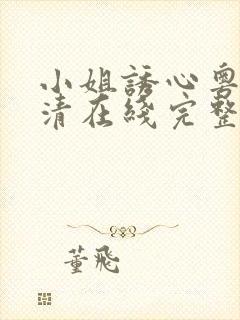 小姐誘心粵
清在綫完整
董飛